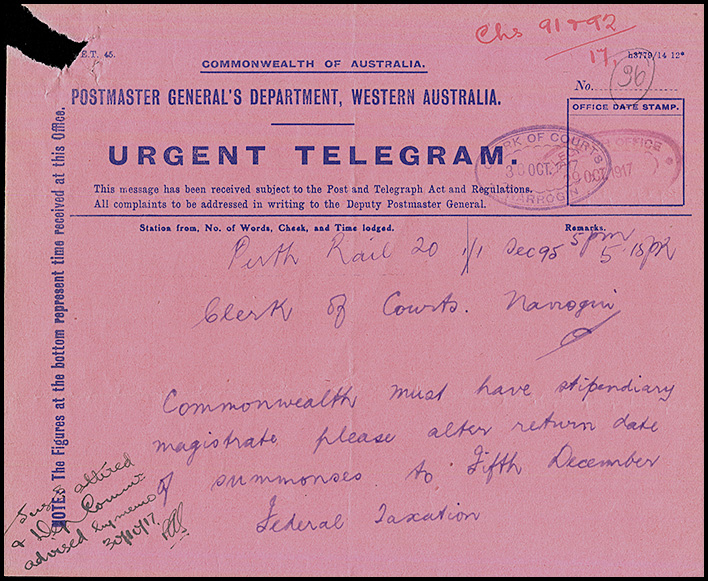 Chs 91 & 92
17
E.T. 45.
h3779/14 12*
COMMONWEALTH OF AUSTRALIA.
No. 96
POSTMASTER GENERAL'S DEPARTMENT, WESTERN AUSTRALIA.
OFFICE DATE STAMP.
URGENT TELEGRAM.
CLERK OF COURTS
30 OCT. 1917
NARROGIN
OFFICE
OCT. 1917
This message has been received subject to the Post and Telegraph Act and Regulations.
All complaints to be addressed in writing to the Deputy Postmaster General.
Station from, No. of Words, Check, and Time lodged.
Remarks.
Perth Rail 20 1/1 Dec 95 5 pm 5.15 pm
Clerk of Courts. Narrogin
Commonwealth must have stipendiary
magistrate please alter return date
of summonses to Fifth December
Federal Taxation
NOTE: The Figures at the bottom represent time received at this Office.
altered
& Dep Commr
advised by memo
30/10/17.